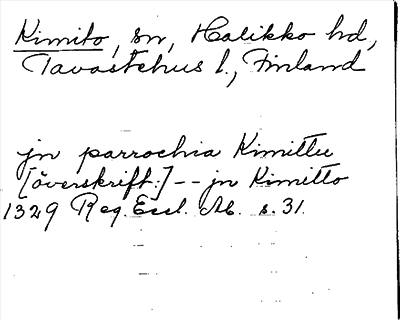 Kimito, sn, Halikko hd,
Tavastehus l., Finland
jn parrochia Kimittu
[överskrift:] -- jn Kimitto
1329 Reg. Eccl. Ab. s. 31.